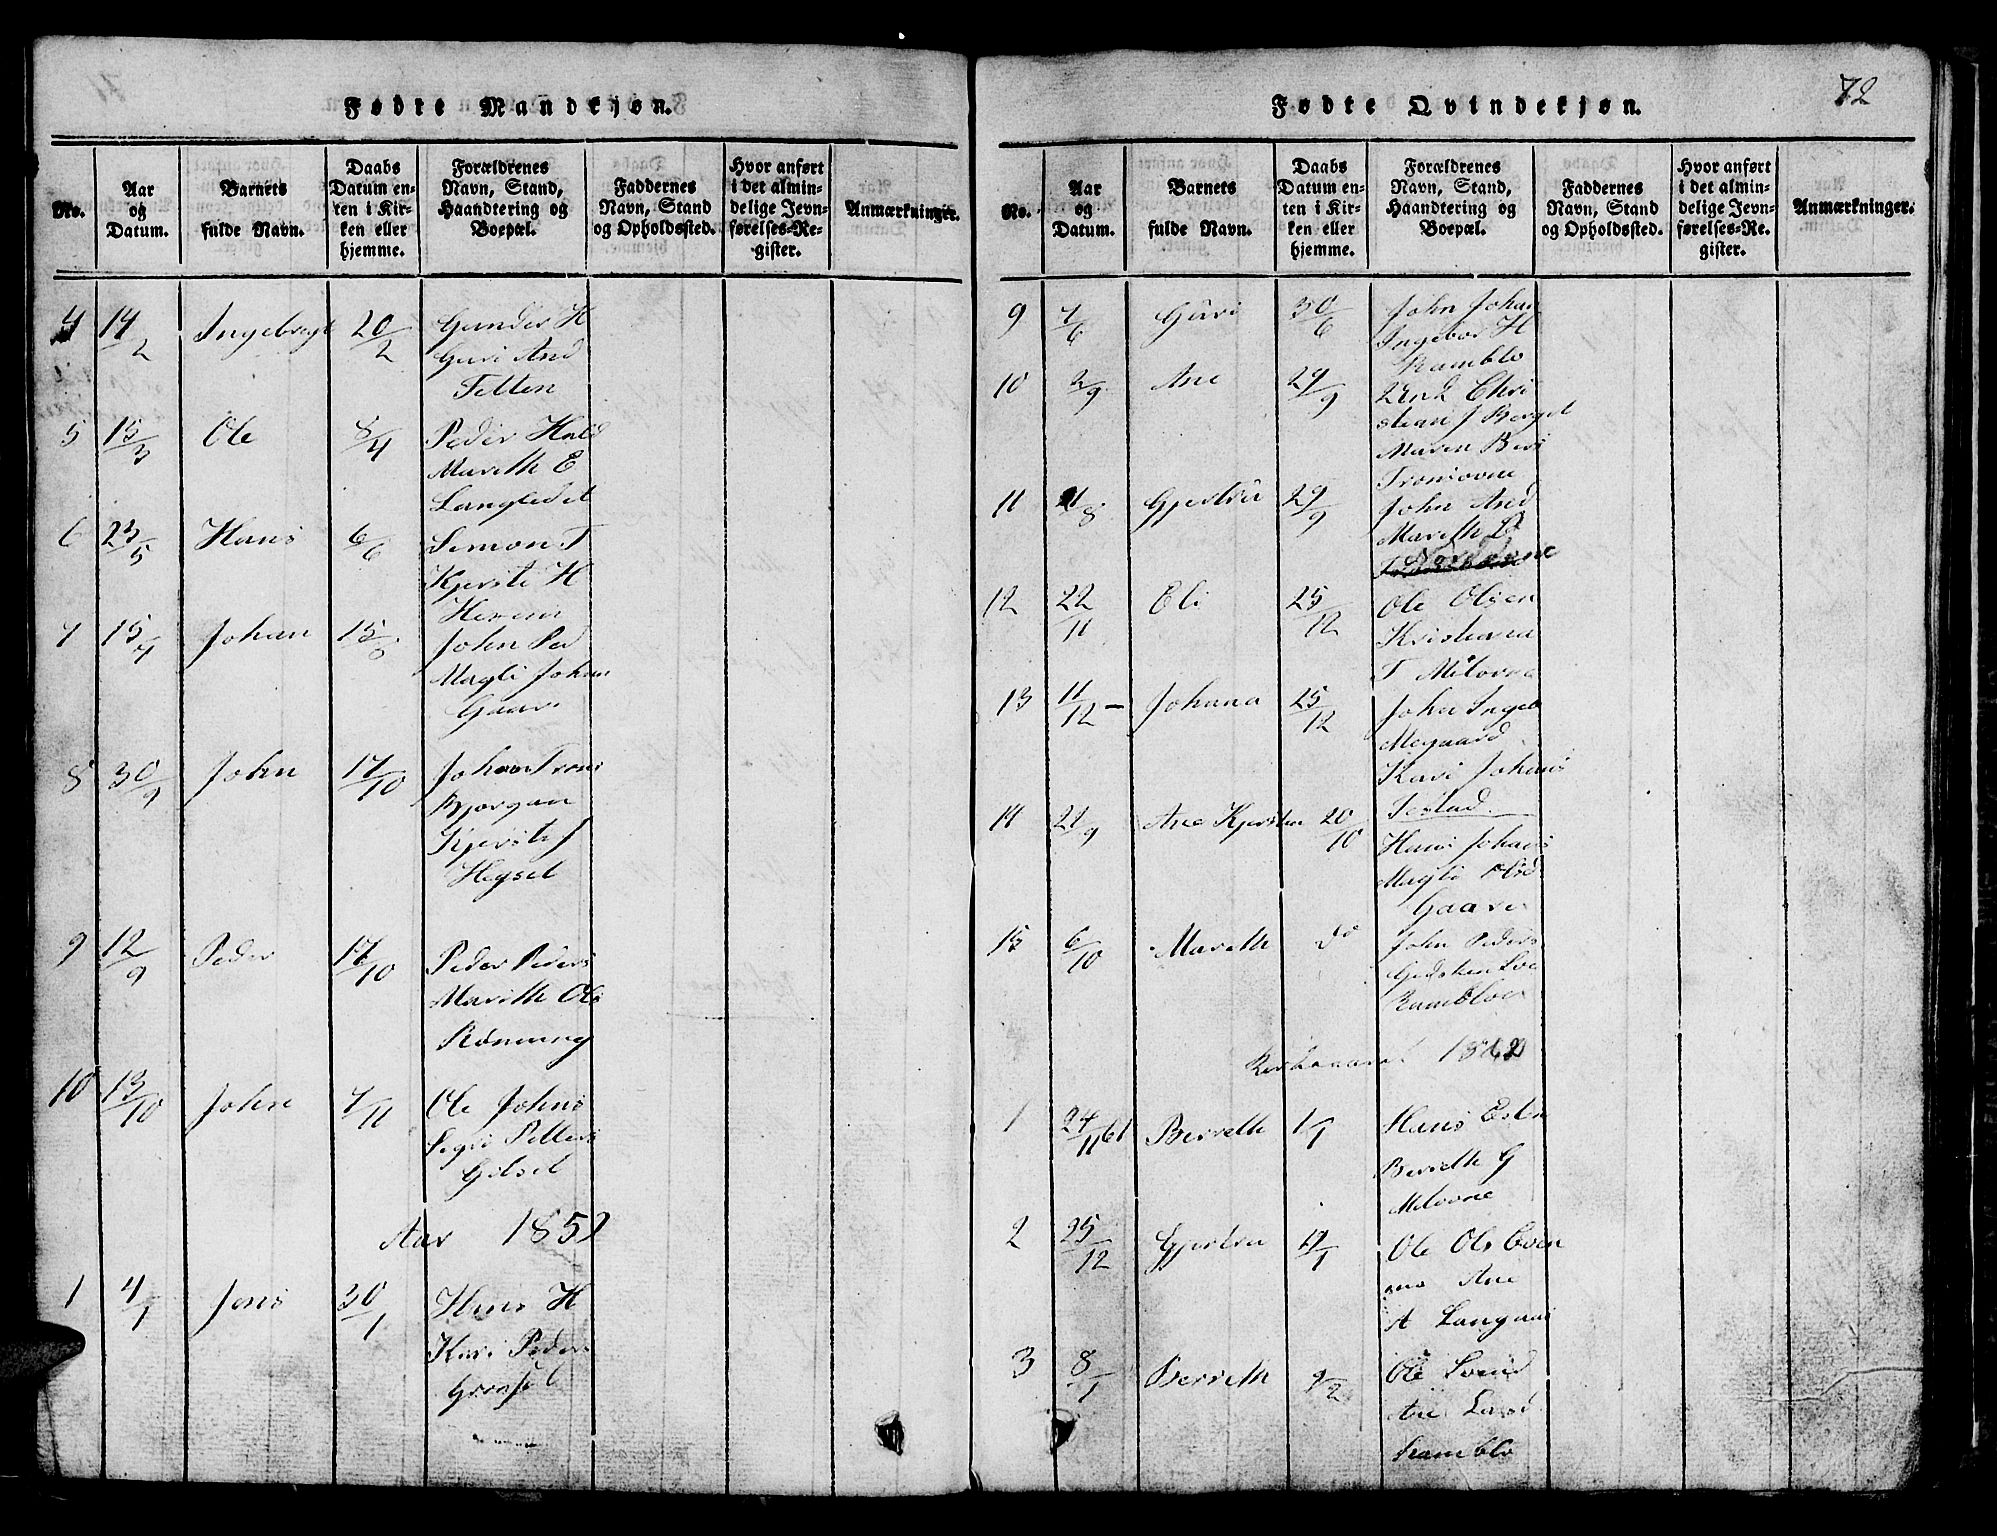 Fødte Mandkjøn.
No.
Aar og Datum.
Barnets fulde Navn.
Daabs Datum enten i Kirken eller hjemme.
Forældrenes Navn, Stand, Haandtering og Boepæl.
Faddernes Navn, Stand og Opholdssted.
Hvor anført i det almindelige Jevnførelses-Register.
Anmærkninger.
4 14/2 Ingebregt 20/2 Gunder H
Guri And
Tellen
5 15/3 Ole 8/4 Peder Hald
Marith E
Langledet
6 23/5 Hans 6/6 Simon T
Kjersti H
7 15/4 Johan John Ped
Magli Johan
Gaare
8 30/9 John 17/10 Johan Trons
Bjorgan
Kjersti J
Hegsel
9 12/9 Peder 17/10 Peder Peders
Marith Ols
Rönning
10 13/10 John 7/11 Ole Johns
Segri Petters
Gilsel
Aar 1852
1 4/1 Jens 30/1 Hans H
Kari Peders
Grønsel
72
Fødte Qvindekjøn.
No.
Aar og Datum.
Barnets fulde Navn.
Daabs Datum enten i Kirken eller hjemme.
Forældrenes Navn, Stand, Haandtering og Boepæl.
Faddernes Navn, Stand og Opholdssted.
Hvor anført i det almindelige Jevnførelses-Register.
Anmærkninger.
9 7/6 Guri 30/6 John Johan
Ingebor H
Ramblo
10 2/9 Ane 29/9 Chri
stian J Berget
Maren Bers
Tronsovne
11 11/8 Gjertru 29/9 John And
Marith
12 22/11 Eli 25/12 Ole Olsen
Kristiana
T Mølovne
13 11/12 - Johana 25/12 John Ingeb
Megaard
Kari Johans
Sestad
14 21/9 Ane Kjersten 20/10 Hans Johans
Magli
Gaare
15 6/10 Marith do John Peders
Ramblo
1 24/11 61 Berreth 1/1 Hans Esten
Berreth G
Molovne
2 25/12 Gjertru 19/1 Ole Ols
Ane
A Langaas
3 8/1 Berreth 9/2 Ole Svend
Ane Lasd
Ramblo